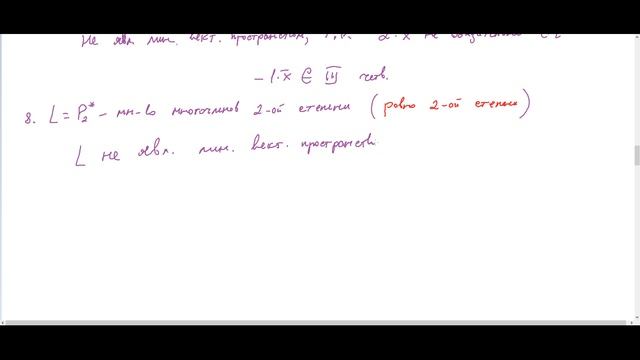 Не явл. лин. вект. пространством, т.к. α·x̄ не обязательно ∈ L
- 1·x̄ ∈ III четв.
8. L = P₂* - мн-во многочленов 2-ой степени (ровно 2-ой степени)
L не явл. лин. вект. пространств